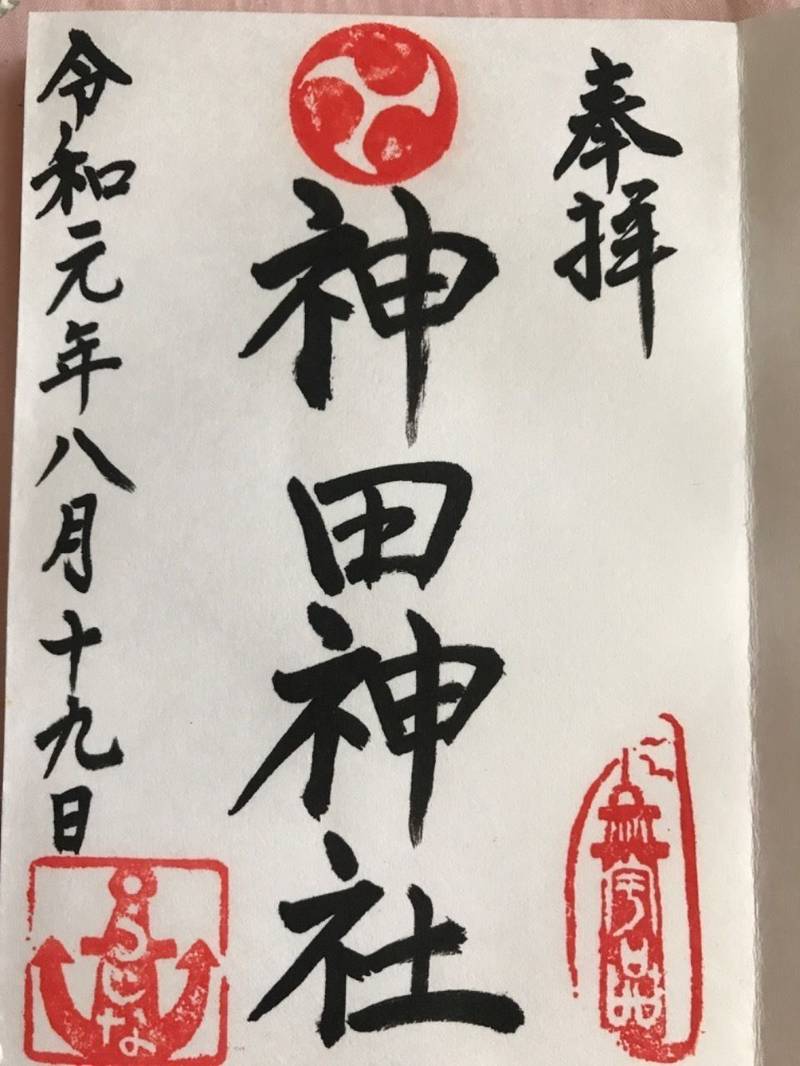 奉拝
宇品
神田神社
令和元年八月十九日
うじな